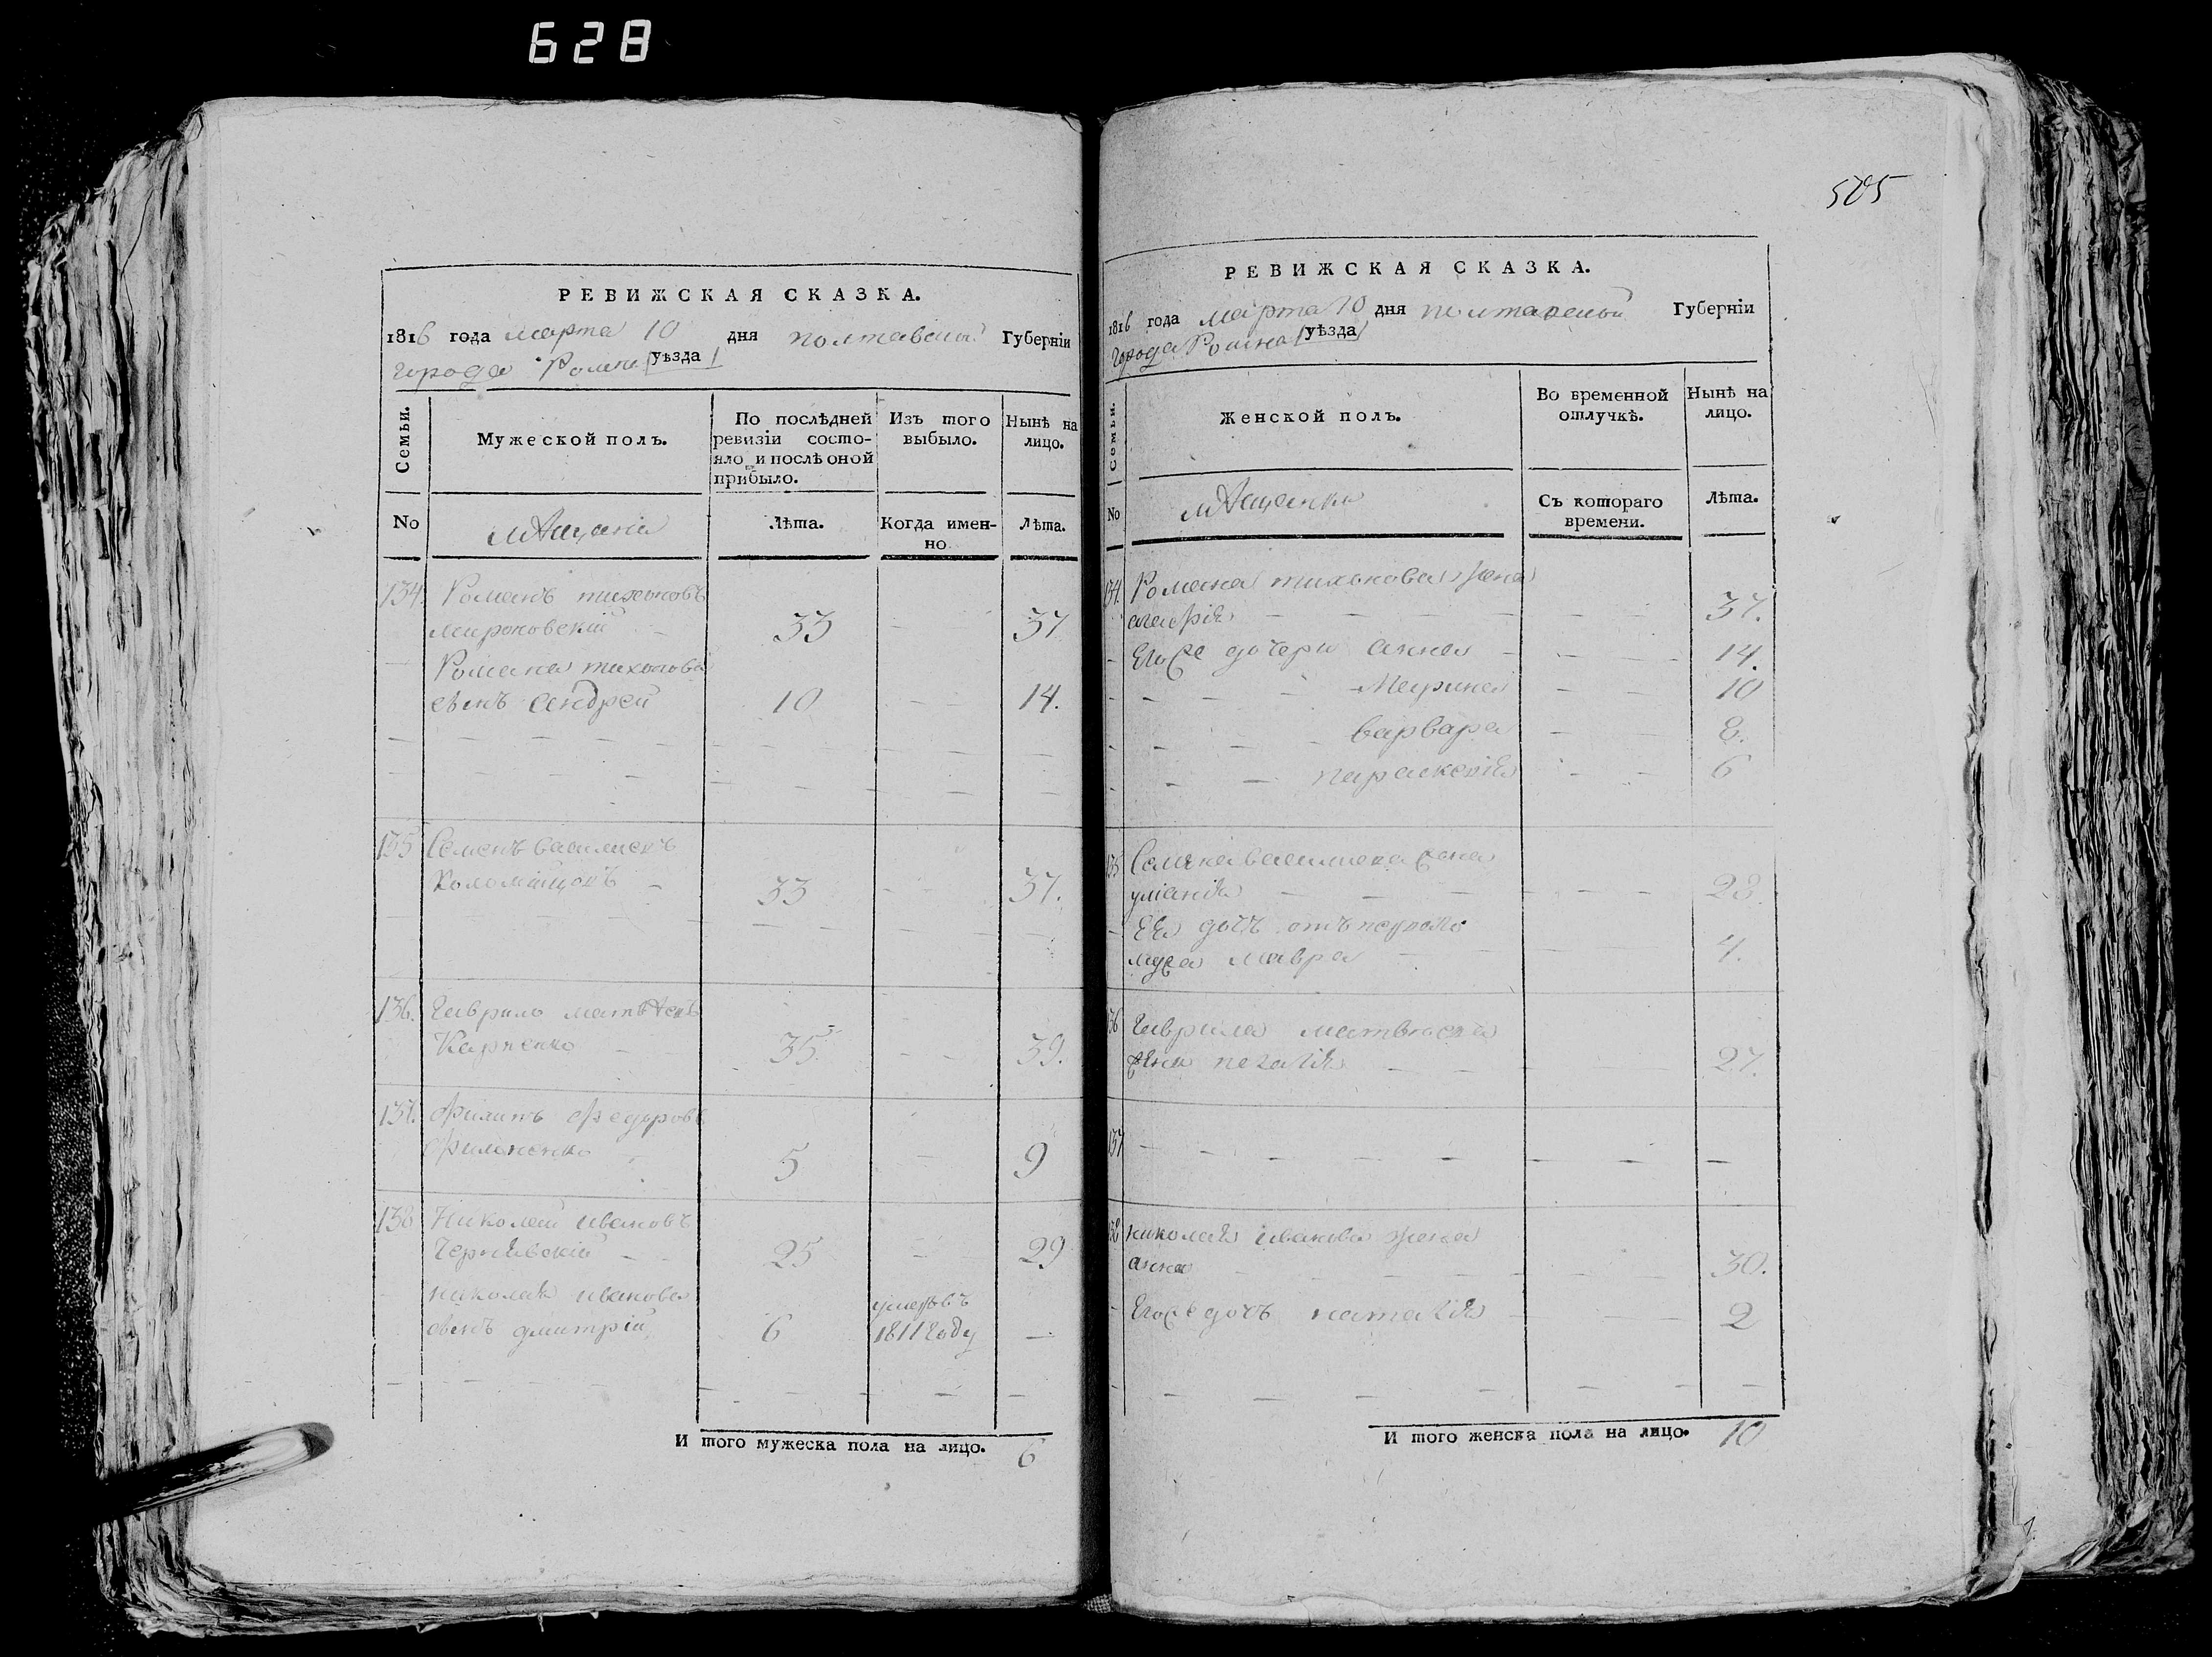 628
РЕВИЖСКАЯ СКАЗКА.
1816 года марта 10 дня полтавской Губерніи
города Ромна уѣзда
Семьи.
Мужеской полъ.
По послѣдней
ревизіи состо-
яло и послѣ оной
прибыло.
Изъ того
выбыло.
Нынѣ на
лицо.
No
мѣщане
Лѣта.
Когда имен-
но
Лѣта.
134. Романъ тихоновъ
мироновскій 33 37
Романа тихонова
сынъ андрей 10 14.
135 Семенъ васильевъ
Коломійцовъ 33 37.
136. Гаврило матвѣевъ
Карпенко 35 39.
137. Филипъ Федоровъ
Филоненко 5 9
138 Николай ивановъ
Чернявскій 25 29
николая иванова
сынъ дмитрій 6 умеръ въ 1811 году
И того мужеска пола на лицо. 6
505
РЕВИЖСКАЯ СКАЗКА.
1816 года марта 10 дня полтавской Губерніи
города Ромна уѣзда
Семьи.
Женской полъ.
Во временной
отлучкѣ.
Нынѣ на
лицо.
No
мѣщанки
Съ котораго
времени.
Лѣта.
134. Романа тихонова жена
агафія 37.
Егоже дочери анна 14.
Марина 10
варвара 8.
параскевія 6
135 Семена василиева жена
уліанія 28.
Ея дочь отъ перваго
мужа мавра 4.
136 Гаврила матвѣева
жена пелагія 27.
137
138 николая иванова жена
анна 30.
Егоже дочь наталія 2
И того женска пола на лицо. 10